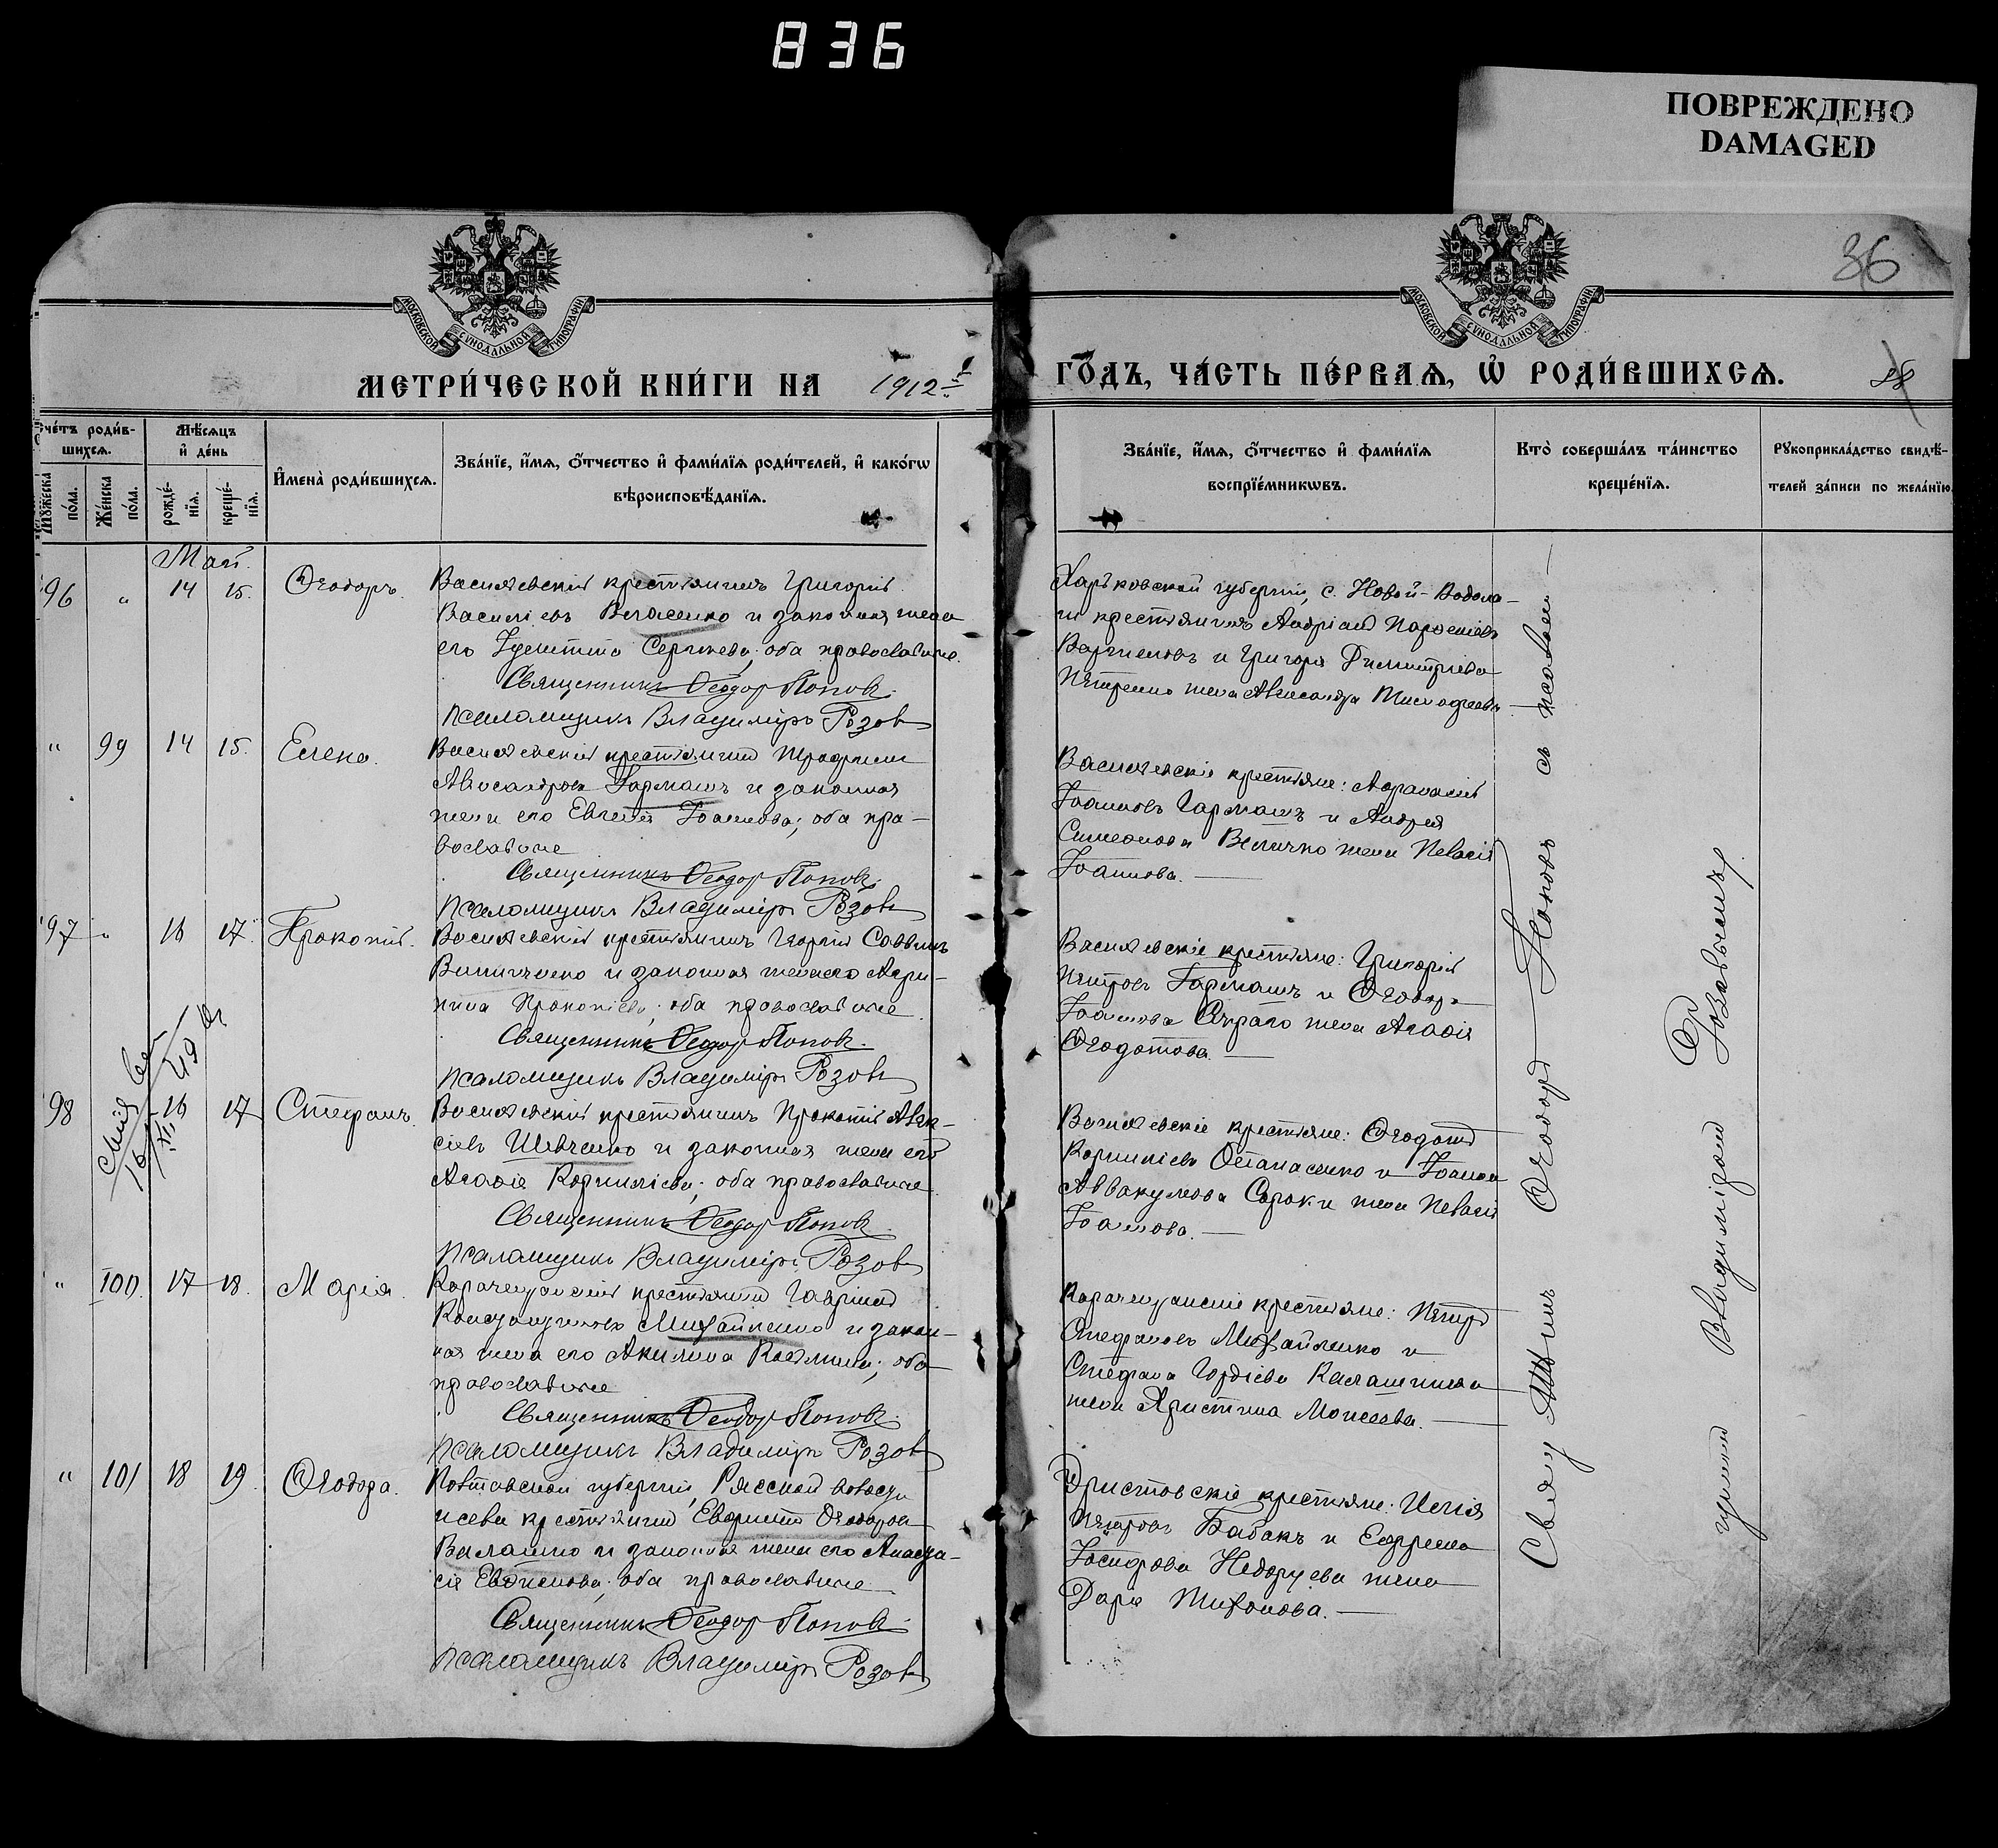 836
ПОВРЕЖДЕНО
DAMAGED
36
МОСКОВСКОЙ СУНОДАЛЬНОЙ ТИПОГРАФИИ
МОСКОВСКОЙ СУНОДАЛЬНОЙ ТИПОГРАФИИ
МЕТРИ́ЧЕСКОЙ КНИ́ГИ НА 1912 й
ГО́ДЪ, ЧА́СТЬ ПЕ́РВАѦ, Ѡ҆ РОДИ́ВШИХСѦ.
Сче́тъ роди́в-
шихсѧ.
Мѣ́сѧцъ
и҆ де́нь
Мꙋжеска по́ла.
Же́нска по́ла.
рожде́-
нїѧ.
креще́-
нїѧ.
И҆мена̀ роди́вшихсѧ.
Зва́нїе, и҆́мѧ, ѻ҆́тчество и҆ фами́лїѧ роди́телей, и҆ како́гѡ
вѣроисповѣ́данїѧ.
Зва́нїе, и҆́мѧ, ѻ҆́тчество и҆ фами́лїѧ
воспрїе́мникѡвъ.
Кто̀ соверша́лъ та́инство
креще́нїѧ.
Рꙋкоприкла́дство свидѣ́-
телей за́писи по жела́нїю.
Май.
96 " 14 15. Ѳеодоръ. Васильевскій крестьянинъ Григорій
Василіевъ Власенко и законная жена
его Іулитта Сергіева; оба православные.
Священникъ Ѳеодор Попов.
Псаломщикъ Владиміръ Розов
Харьковской губерніи, с. Новой-Водола-
ги крестьянинъ Андріанъ Парѳеніевъ
и Григорія Димитріева
Петренко жена Александра
" 99 14 15. Елена. Васильевскій крестьянинъ Трофимъ
Александровъ Гармашъ и законная
жена его Евгенія Іоаннова; оба пра-
вославные
Священникъ Ѳеодор Попов.
Псаломщикъ Владиміръ Розов
Васильевскіе крестьяне: Аѳанасій
Іоанновъ Гармашъ и Андрея
Симеонова Величко жена Пелагія
Іоаннова.
97 " 16 17. Прокопій. Васильевскій крестьянинъ Георгій Саввинъ
и законная жена его Агри-
пина Прокопіева; оба православные.
Священникъ Ѳеодор Попов.
Псаломщикъ Владиміръ Розов
Васильевскіе крестьяне: Григорій
Петровъ Гармашъ и Ѳеодора
Іоаннова жена Агаѳія
Ѳеодотова.
98 16 17 Стефанъ. Васильевскій крестьянинъ Прокопій Алек-
сіевъ Шевченко и законная жена его
Агаѳія Корниліева; оба православные.
Священникъ Ѳеодор Попов.
Псаломщикъ Владиміръ Розов
Васильевскіе крестьяне: Ѳеодотъ
Корниліевъ Остапенко и Іоанна
Аввакумова Сороки жена Пелагія
Іоаннова.
" 100. 17 18. Марія. крестьянинъ Гавріилъ
Михайленко и закон-
ная жена его Акилина Козмина; оба
православные
Священникъ Ѳеодор Попов.
Псаломщикъ Владиміръ Розов
крестьяне: Петръ
Стефановъ Михайленко и
Стефана Гордіева Калашника
жена Христина Моисеева.
" 101 18 19. Ѳеодора. Полтавской губерніи, Рясской волости
и села крестьянинъ Ѳеодоровъ
и законная жена его Анаста-
сія Евѳиміова; оба православные
Священникъ Ѳеодор Попов.
Псаломщикъ Владиміръ Розов
крестьяне: Илія
Петровъ Бабакъ и Ефрема
Іосифова жена
Дарія Тихонова.
Священникъ Ѳеодоръ Поповъ съ псалом-
щикомъ Владиміромъ Розовымъ